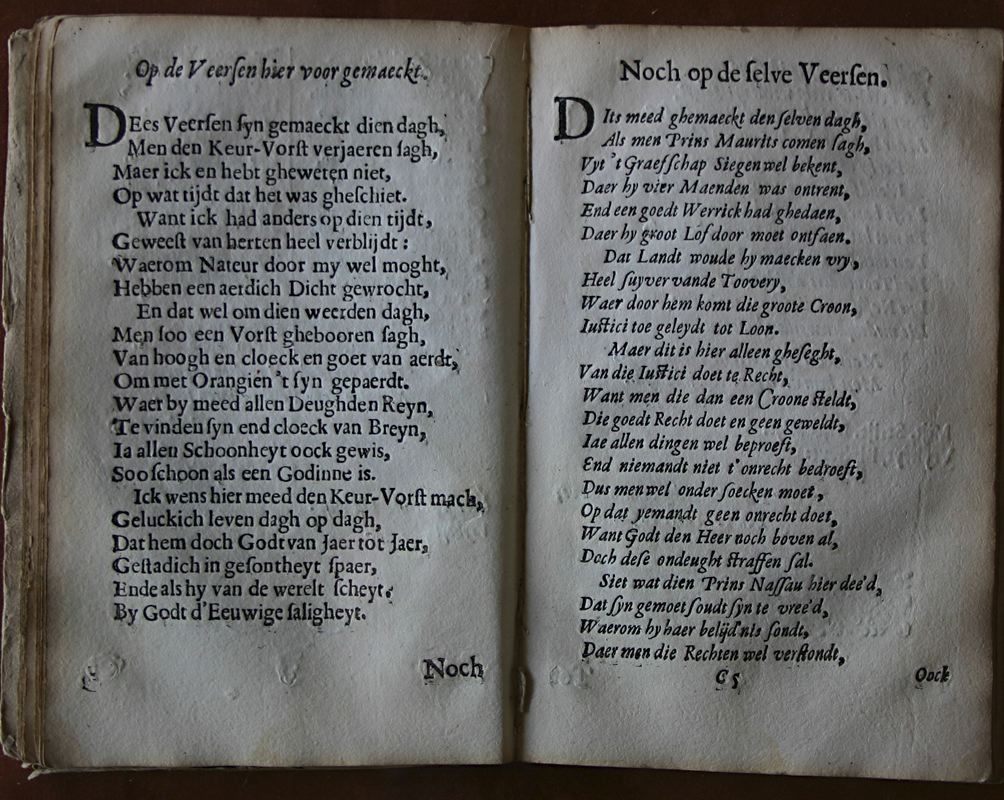 Op de Veerſen hier voor gemaeckt.
DEes Veerſen ſyn gemaeckt dien dagh,
Men den Keur-Vorſt verjaeren ſagh,
Maer ick en hebt gheweten niet,
Op wat tijdt dat het was gheſchiet.
Want ick had anders op dien tijdt,
Geweeſt van herten heel verblijdt:
Waerom Nateur door my wel moght,
Hebben een aerdich Dicht gewrocht,
En dat wel om dien weerden dagh,
Men ſoo een Vorſt ghebooren ſagh,
Van hoogh en cloeck en goet van aerdt,
Om met Orangien 't ſyn gepaerdt.
Waer by meed allen Deughden Reyn,
Te vinden ſyn end cloeck van Breyn,
Ia allen Schoonheyt oock gewis,
Soo ſchoon als een Godinne is.
Ick wens hier meed den Keur-Vorſt mach,
Geluckich leven dagh op dagh,
Dat hem doch Godt van Jaer tot Jaer,
Geſtadich in geſontheyt ſpaer,
Ende als hy van de werelt ſcheyt,
By Godt d'Eeuwige ſaligheyt.
Noch
Noch op de ſelve Veerſen.
DIts meed ghemaeckt den ſelven dagh,
Als men Prins Maurits comen ſagh,
Vyt 't Graefſchap Siegen wel bekent,
Daer hy vier Maenden was ontrent,
End een goedt Werrick had ghedaen,
Daer hy groot Lof door moet ontfaen.
Dat Landt woude hy maecken vry,
Heel ſuyver vande Toovery,
Waer door hem komt die groote Croon,
Iuſtici toe geleydt tot Loon.
Maer dit is hier alleen gheſeght,
Van die Iuſtici doet te Recht,
Want men die dan een Croone ſteldt,
Die goedt Recht doet en geen geweldt,
Iae allen dingen wel beproeft,
End niemandt niet t'onrecht bedroeft,
Dus men wel onder ſoecken moet,
Op dat yemandt geen onrecht doet,
Want Godt den Heer noch boven al,
Doch deſe ondeught ſtraffen ſal.
Siet wat dien Prins Naſſau hier dee'd,
Dat ſyn gemoet ſoudt ſyn te vree'd,
Waerom hy haer belijd'nis ſondt,
Daer men die Rechten wel verſtondt,
C5
Oock